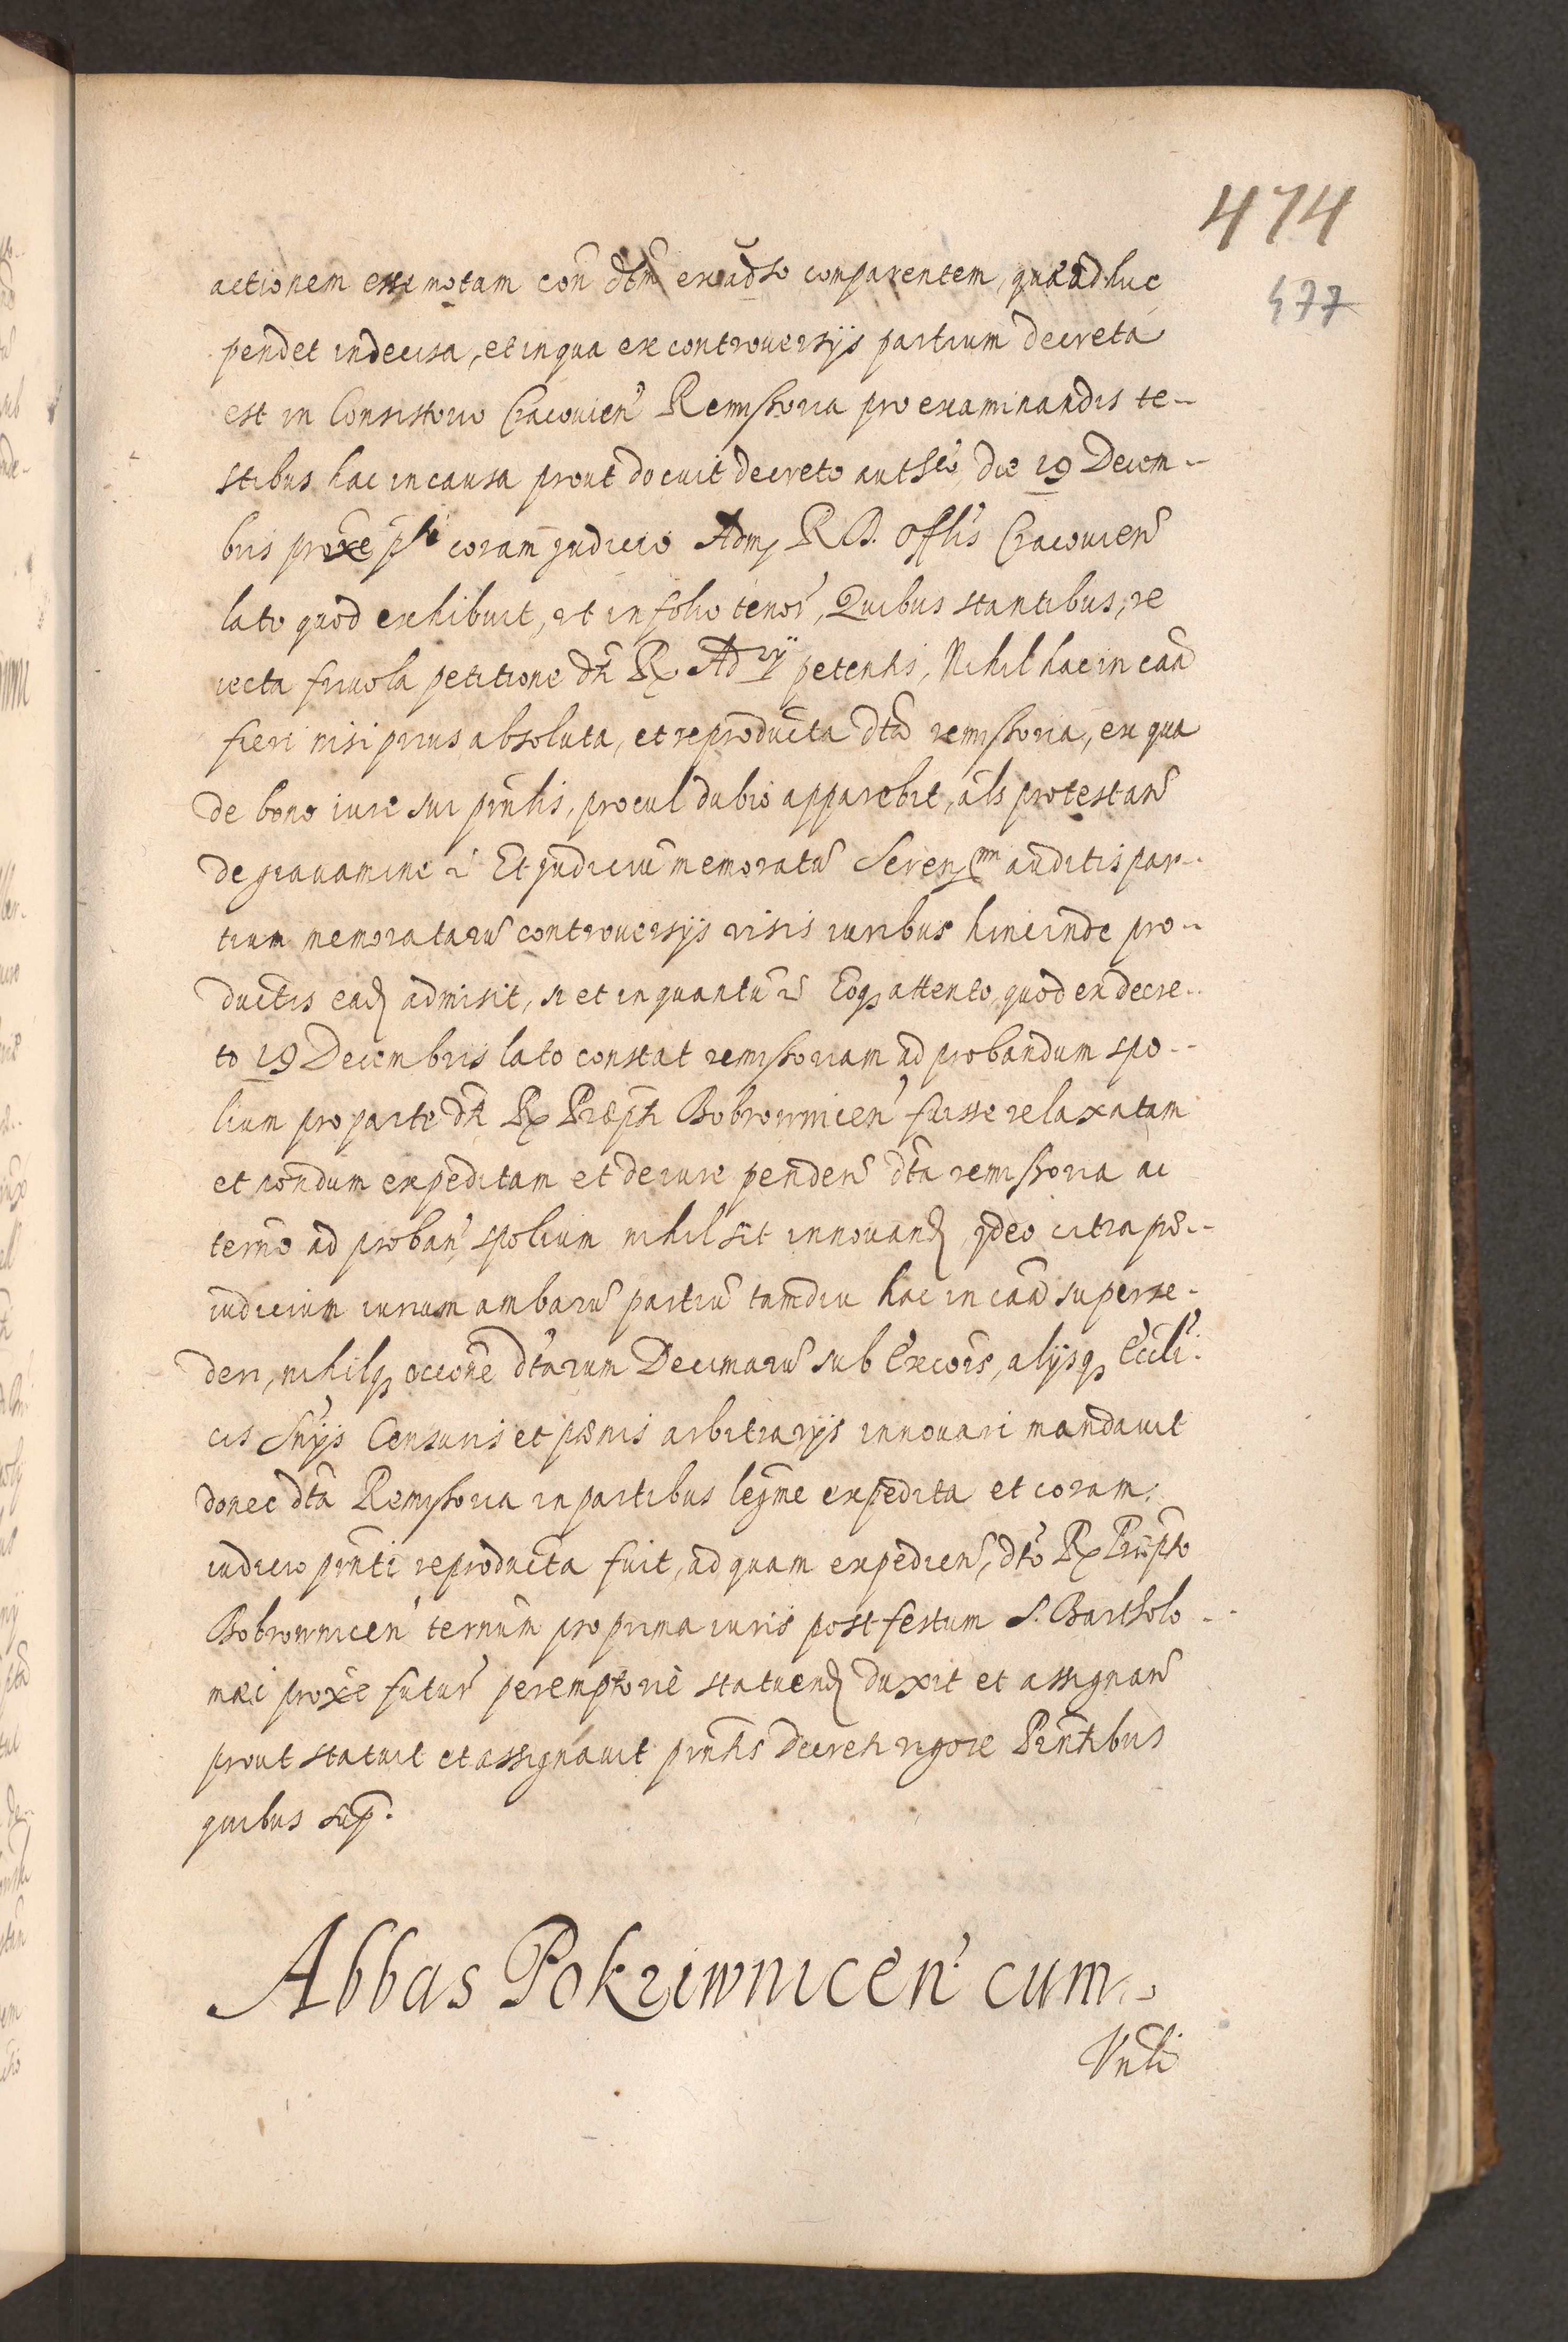 474
477
actionem esse motam con̄ dt̃m ex adso comparentem, quæ adhuc
pendet indecisa, et in qua ex controuersijs partium decreta
est in Consistorio Cracouien̄ Remissoria pro examinandis te-
stibus hac in causa prout docuit decreto die 19 Decem-
bris proxe coram judicio Adm R D. Offlis Cracouien̄
lato quod exhibuit, ut in folio tenor̄, Quibus stantibus, re
iecta friuola petitione petentis, Nihil hac in caā
fieri nisi prius absoluta, et reproducta dtā remissoria, ex qua
de bono iure sui prn̄lis, procul dubio apparebit, als̄ protestan̄
de grauamine Et judiciū memoratū auditis par-
tium memoratarū controuersijs visis iuribus hincinde pro-
ductis admisit, si et in quantū Eoq; attento, quod ex decre-
to 19 Decembris lato constat remissoriam ad probandum spo-
lium pro parte dti Bobrownicen̄ fuisse relaxatam
et nondum expeditam et de iure penden̄ dtā remissoria ac
terno ad proban̄ spolium nihil sit innouand̄ jdeo citra præ-
iudicium iurium ambarū partiū tamdiu hac in caā superse-
deri, nihilq; occōne dtarum Decimarū sub Excōis, alijsq; Eccli-
cis Snijs Censuris et pænis arbitrarijs innouari mandauit
donec dtā Remissoria in partibus legme expedita et coram
iudicio prn̄ti reproducta fuit, ad quam expedien̄, dto
Bobrownicen̄ ternum pro prima iuris post festum S. Bartholo-
mæi proxe futur̄ peremptorie statuend̄ duxit et assignan̄
prout statuit et assignauit prn̄tis decreti vigore Prn̄tibus
quibus sup.
Abbas Pokrziwnicen̄ cum